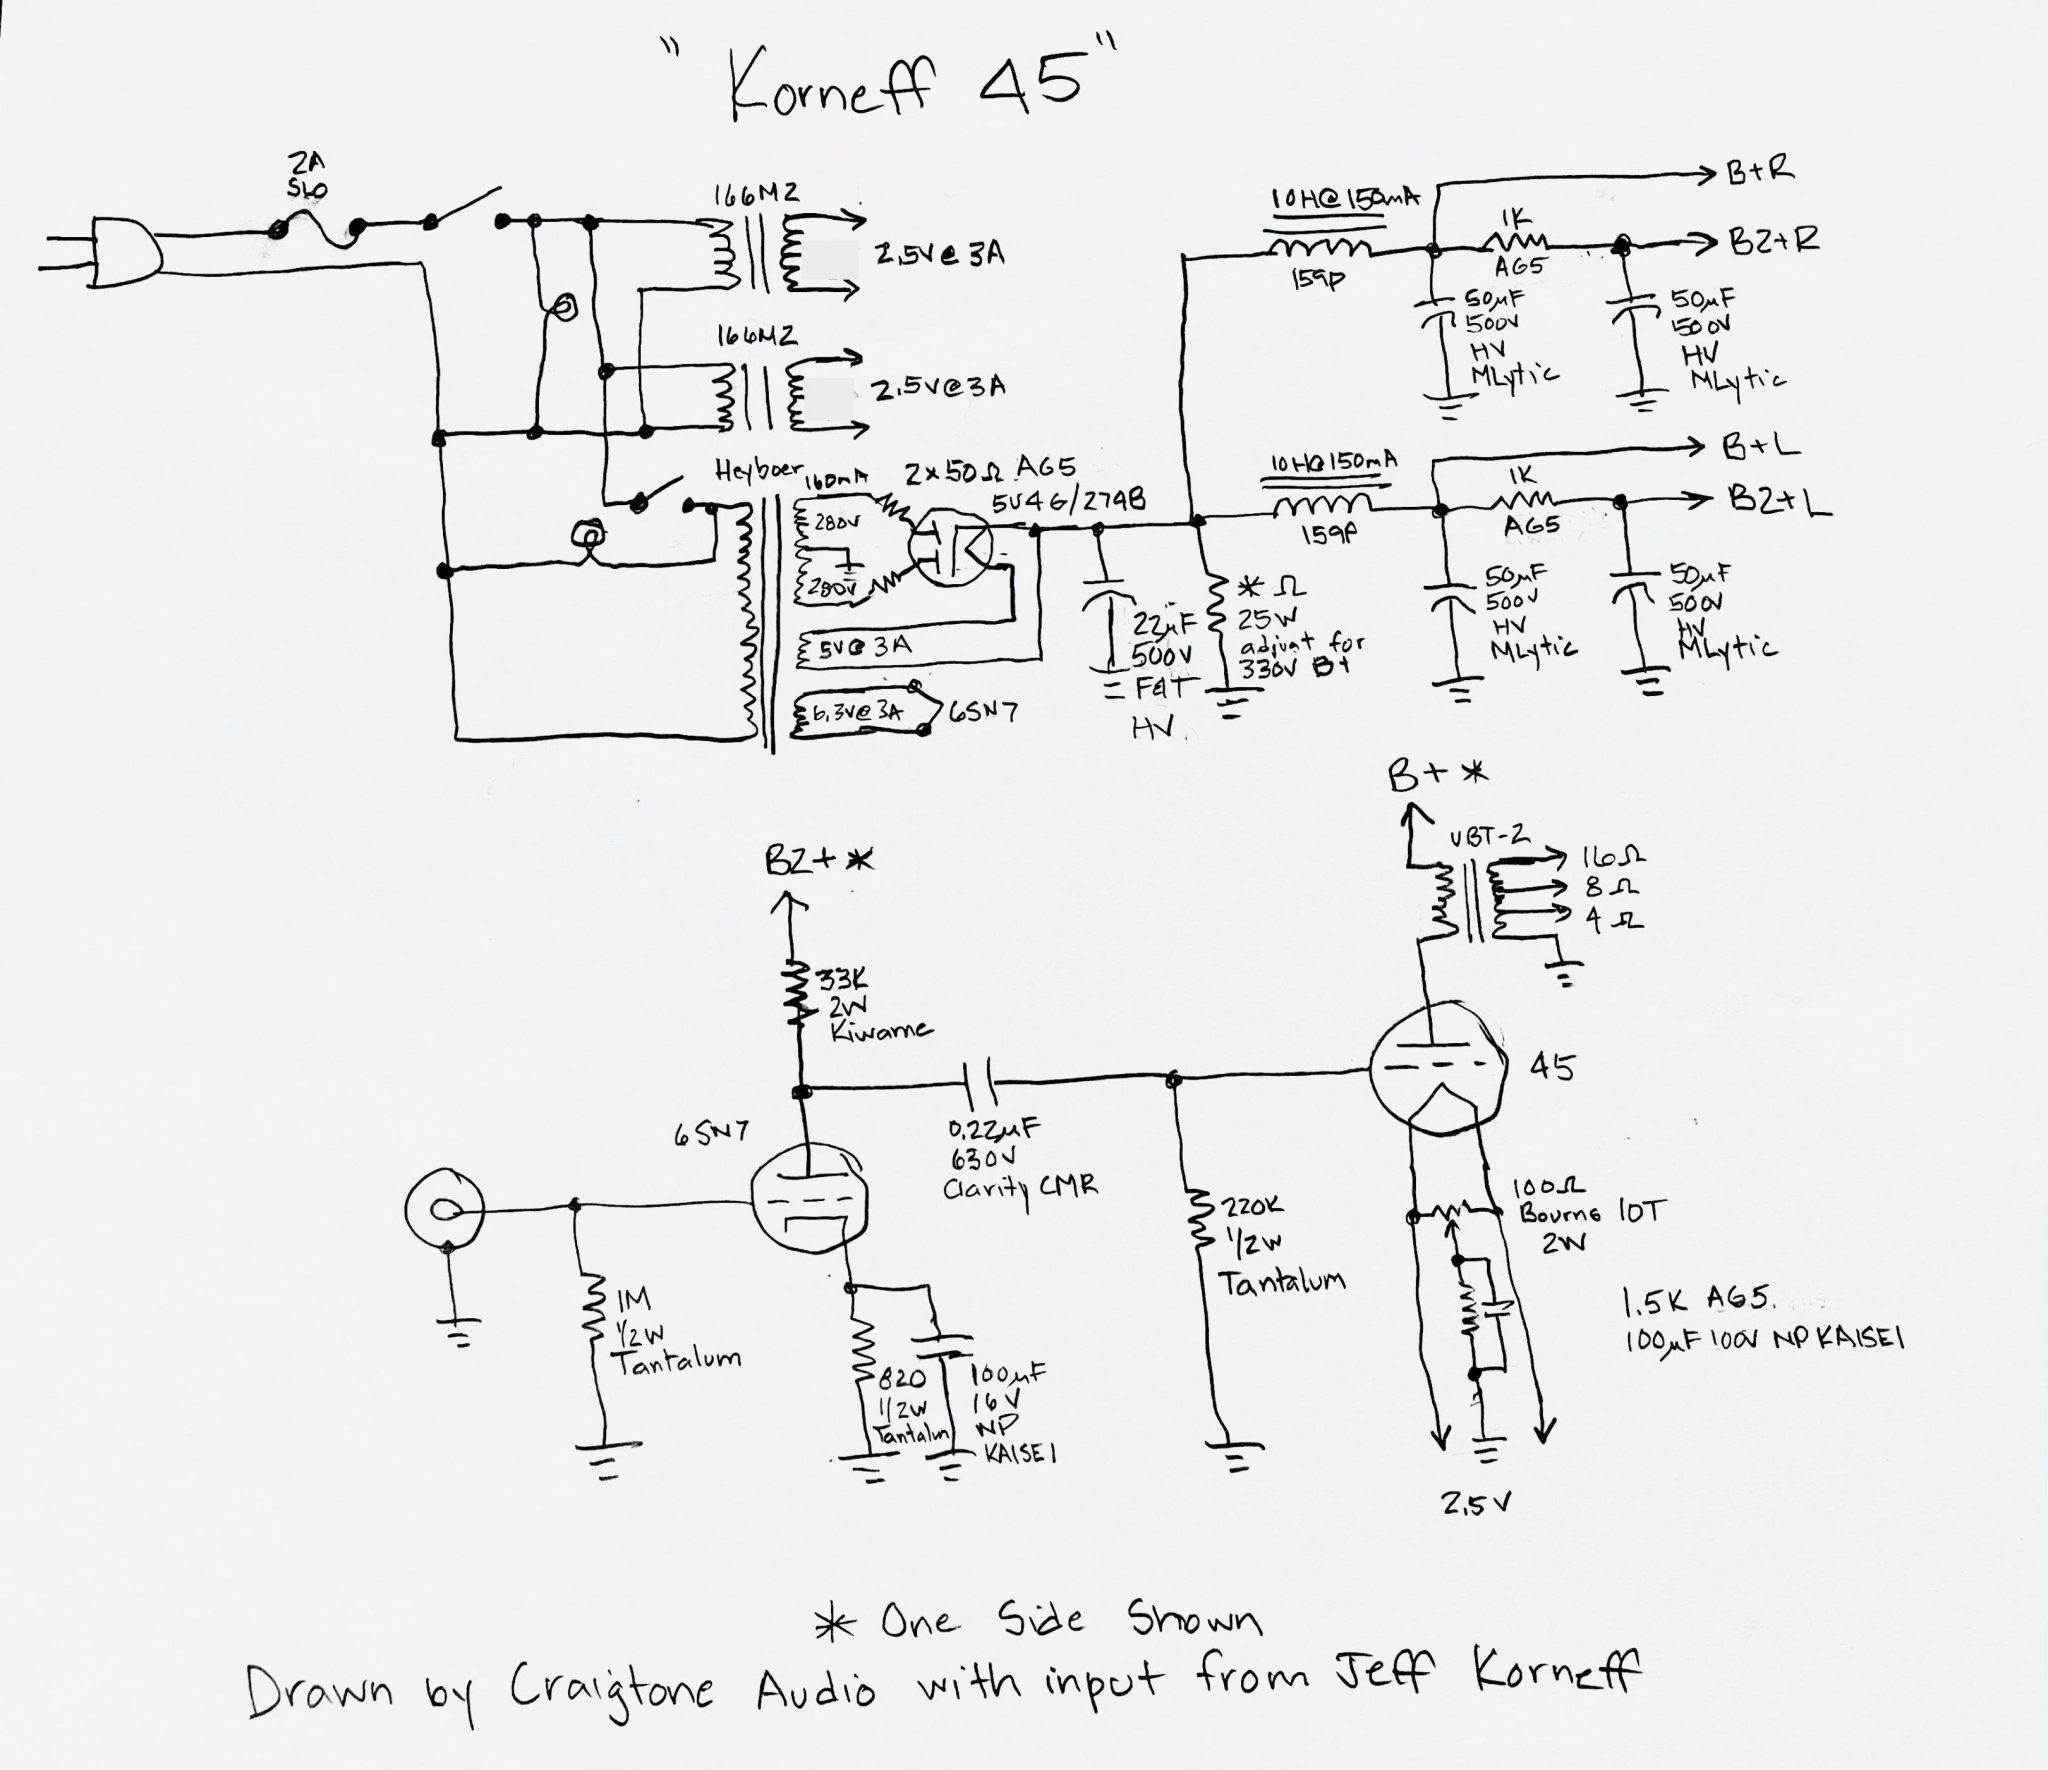 "Korneff 45"
2A
SLO
166M2
2.5V@3A
166M2
2.5V@3A
Heyboer
160mA
280V
280V
2x50Ω AG5
5V4G/274B
5V@3A
6.3V@3A
6SN7
22µF
500V
F&T
HV
* Ω
25W
adjust for
330V B+
10H@150mA
159P
B+R
1K
AG5
B2+R
50µF
500V
HV
MLytic
50µF
500V
HV
MLytic
10H@150mA
159P
B+L
1K
AG5
B2+L
50µF
500V
HV
MLytic
50µF
500V
HV
MLytic
B2+*
33K
2W
Kiwame
6SN7
1M
1/2W
Tantalum
820
1/2W
Tantalum
100µF
16V
NP
KAISEI
0.22µF
630V
Clarity CMR
220K
1/2W
Tantalum
B+*
UBT-2
16Ω
8Ω
4Ω
45
100Ω
Bourns 10T
2W
1.5K AG5.
100µF 100V NP KAISEI
2.5V
* One Side Shown
Drawn by Craigtone Audio with input from Jeff Korneff